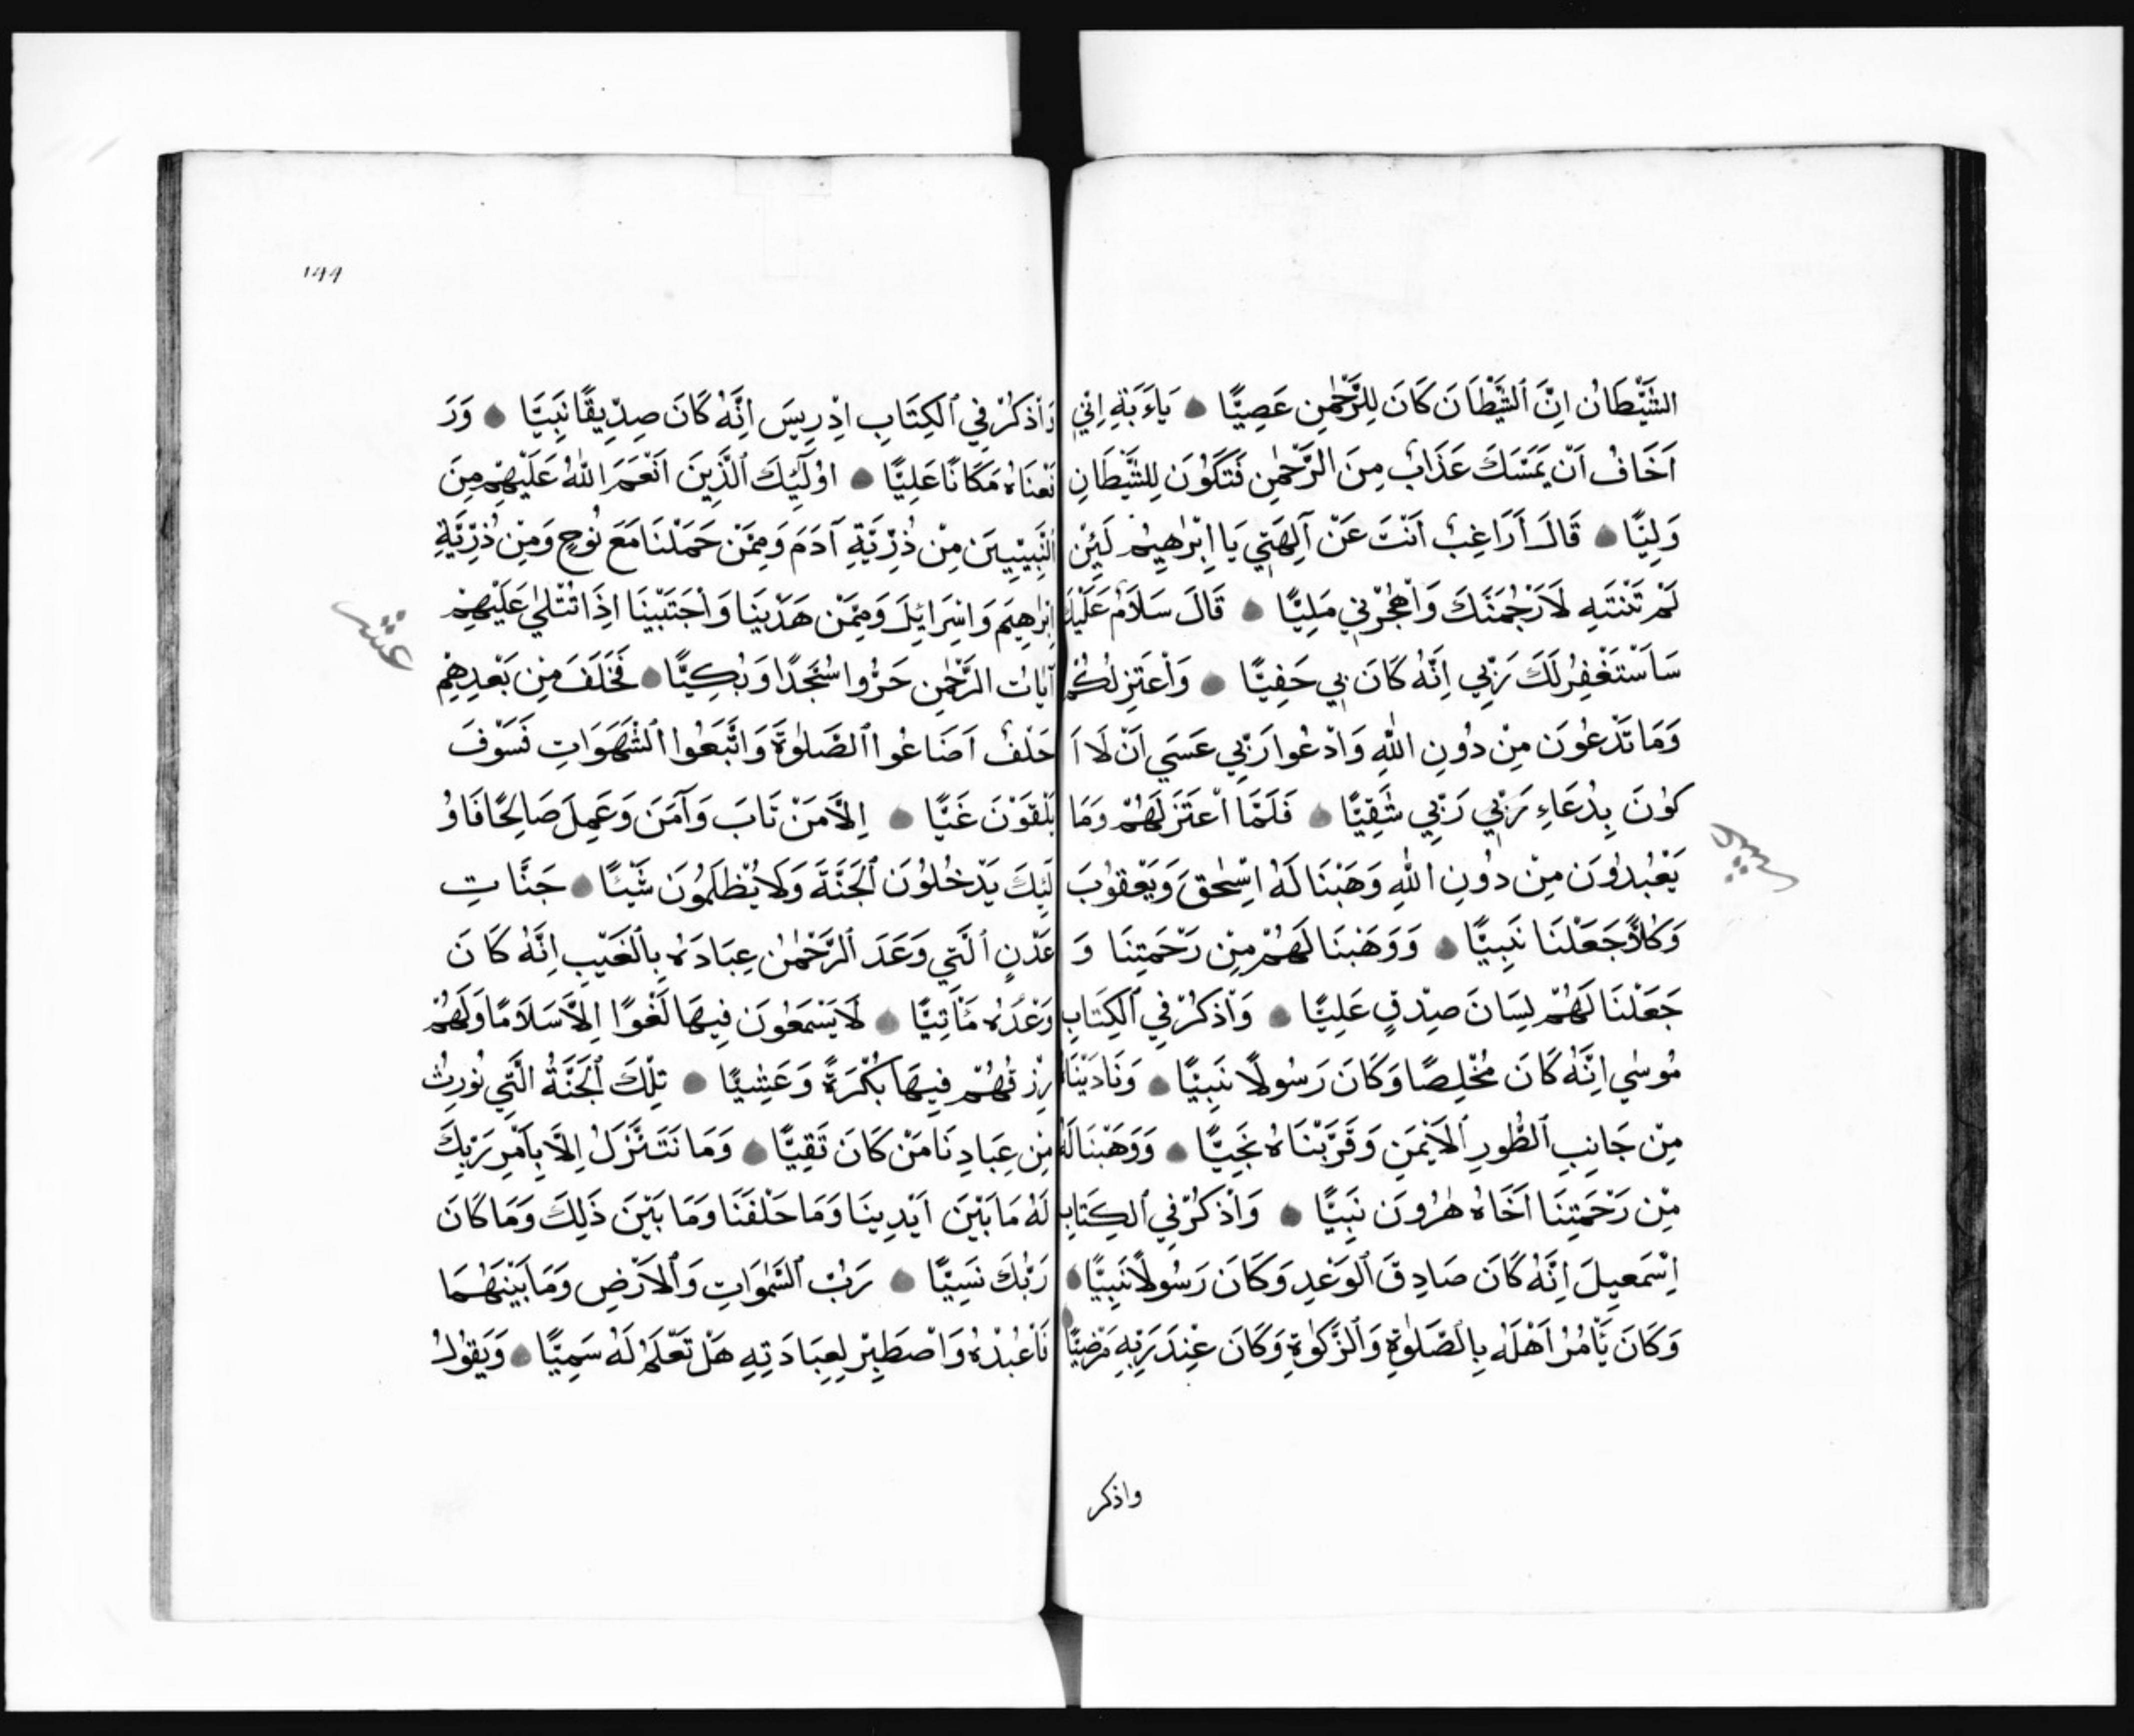 الشَّيْطَانُ اِنَّ ٱلشَّيْطَانَ كَانَ لِلرَّحْمٰنِ عَصِيًّا ۞ يَاءَبَةِ اِنِّي
اَخَافُ اَنْ يَمَسَّكَ عَذَابٌ مِنَ الرَّحْمٰنِ فَتَكُوْنَ لِلشَّيْطَانِ
وَلِيًّا ۞ قَالَ اَرَاغِبٌ اَنْتَ عَنْ آلِهَتِي يَا اِبْرٰهِيمُ لَئِنْ
لَمْ تَنْتَهِ لَاَرْجُمَنَّكَ وَاْهْجُرْنِي مَلِيًّا ۞ قَالَ سَلَامٌ عَلَيْكَ
سَاَسْتَغْفِرُ لَكَ رَبِّي اِنَّهُ كَانَ بِي حَفِيًّا ۞ وَاْعْتَزِلُكُمْ
وَمَا تَدْعُونَ مِنْ دُونِ اللّٰهِ وَادْعُوا رَبِّي عَسَي اَنْ لَا اَ
كُوْنَ بِدُعَاءِ رَبِّي رَبِّي شَقِيًّا ۞ فَلَمَّا اْعْتَزَلَهُمْ وَمَا
يَعْبُدُوْنَ مِنْ دُوْنِ اللّٰهِ وَهَبْنَا لَهُ اِسْحٰقَ وَيَعْقُوْبَ
وَكُلًّا جَعَلْنَا نَبِيًّا ۞ وَوَهَبْنَا لَهُمْ مِنْ رَحْمَتِنَا وَ
جَعَلْنَا لَهُمْ لِسَانَ صِدْقٍ عَلِيًّا ۞ وَاْذكُرْ فِي ٱلْكِتَابِ
مُوسٰي اِنَّهُ كَانَ مُخْلِصًا وَكَانَ رَسُولًا نَبِيًّا ۞ وَنَادَيْنَاهُ
مِنْ جَانِبِ ٱلطُّورِ ٱلْاَيْمَنِ وَقَرَّبْنَاهُ نَجِيًّا ۞ وَوَهَبْنَا لَهُ
مِنْ رَحْمَتِنَا اَخَاهُ هٰرُونَ نَبِيًّا ۞ وَاْذكُرْ فِي ٱلْكِتَابِ
اِسْمَعِيلَ اِنَّهُ كَانَ صَادِقَ ٱلْوَعْدِ وَكَانَ رَسُولًا نَبِيًّا ۞
وَكَانَ يَأْمُرُ اَهْلَهُ بِالصَّلٰوةِ وَٱلزَّكٰوةِ وَكَانَ عِنْدَ رَبِّهِ مَرْضِيًّا ۞
واذكر
١٩٩
وَاْذكُرْ فِي ٱلْكِتَابِ اِدْرِيسَ اِنَّهُ كَانَ صِدِّيقًا نَبِيًّا ۞ وَرَ
فَعْنَاهُ مَكَانًا عَلِيًّا ۞ اوُلٰٓئِكَ ٱلَّذِينَ اَنْعَمَ اللّٰهُ عَلَيْهِمْ مِنَ
ٱلنَّبِيِّينَ مِنْ ذُرِّيَّةِ آدَمَ وَمِمَّنْ حَمَلْنَا مَعَ نُوحٍ وَمِنْ ذُرِّيَّةِ
اِبْرٰهِيمَ وَاِسْرَائِلَ وَمِمَّنْ هَدَيْنَا وَاْجْتَبَيْنَا اِذَا تُتْلٰي عَلَيْهِمْ
آيَاتُ الرَّحْمٰنِ خَرُّوا سُجَّدًا وَبُكِيًّا ۞ فَخَلَفَ مِنْ بَعْدِهِمْ
خَلْفٌ اَضَاعُوا ٱلصَّلٰوةَ وَاتَّبَعُوا ٱلشَّهَوَاتِ فَسَوْفَ
يَلْقَوْنَ غَيًّا ۞ اِلَّا مَنْ تَابَ وَآمَنَ وَعَمِلَ صَالِحًا فَاوُ
لٰئِكَ يَدْخُلُوْنَ ٱلْجَنَّةَ وَلَا يُظْلَمُوْنَ شَيْئًا ۞ جَنَّاتِ
عَدْنٍ ٱلَّتِي وَعَدَ ٱلرَّحْمٰنُ عِبَادَهُ بِالْغَيْبِ اِنَّهُ كَانَ
وَعْدُهُ مَأْتِيًّا ۞ لَا يَسْمَعُونَ فِيهَا لَغْوًا اِلَّا سَلَامًا وَلَهُمْ
رِزْقُهُمْ فِيهَا بُكْرَةً وَعَشِيًّا ۞ تِلْكَ ٱلْجَنَّةُ الَّتِي نُورِثُ
مِنْ عِبَادِنَا مَنْ كَانَ تَقِيًّا ۞ وَمَا نَتَنَزَّلُ اِلَّا بِاَمْرِ رَبِّكَ
لَهُ مَا بَيْنَ اَيْدِينَا وَمَا خَلْفَنَا وَمَا بَيْنَ ذَلِكَ وَمَا كَانَ
رَبُّكَ نَسِيًّا ۞ رَبُّ ٱلسَّمٰوَاتِ وَٱلْاَرْضِ وَمَا بَيْنَهُمَا
فَاْعْبُدْهُ وَاْصْطَبِرْ لِعِبَادَتِهِ هَلْ تَعْلَمُ لَهُ سَمِيًّا ۞ وَيَقُوْلُ
عشر